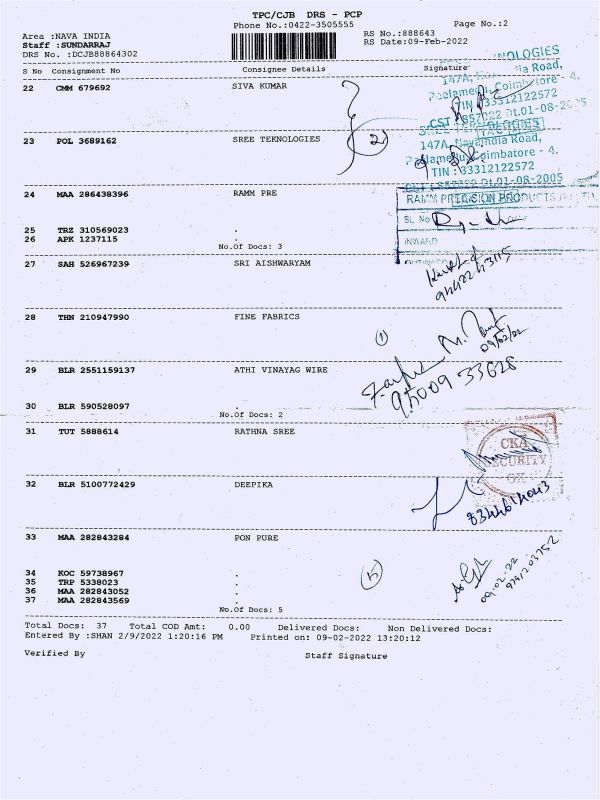 TPC/CJB DRS - PCP
Phone No.:0422-3505555
Page No.:2
Area :NAVA INDIA
RS No.:888643
Staff :SUNDARRAJ
RS Date:09-Feb-2022
DRS No. :DCJB88864302
S No Consignment No Consignee Details Signature
22 CMM 679692 SIVA KUMAR
NOLOGIES
147A, ia Road,
Coimbatore - 4.
TIN :33312122572
CST : 857022 Dt.01-08-2005
23 POL 3689162 SREE TEKNOLOGIES
2
147A, Navaindia Road,
Peelamedu, Coimbatore - 4.
TIN : 33312122572
CST : 857022 Dt.01-08-2005
24 MAA 286438396 RAMM PRE
RAMM PRECISION PRODUCTS
SL No
INWARD
25 TRZ 310569023 .
26 APK 1237115 .
No.Of Docs: 3
27 SAH 526967239 SRI AISHWARYAM
28 THN 210947990 FINE FABRICS
1
09/02/22
29 BLR 2551159137 ATHI VINAYAG WIRE
95009 33628
30 BLR 590528097 .
No.Of Docs: 2
31 TUT 5888614 RATHNA SREE
CKA
SECURITY
OK
32 BLR 5100772429 DEEPIKA
8344614043
33 MAA 282843284 PON PURE
5
09.02.22
34 KOC 59738967 .
35 TRP 5338023 .
36 MAA 282843052 .
37 MAA 282843569 .
No.Of Docs: 5
Total Docs: 37 Total COD Amt: 0.00 Delivered Docs: Non Delivered Docs:
Entered By :SHAN 2/9/2022 1:20:16 PM Printed on: 09-02-2022 13:20:12
Verified By Staff Signature